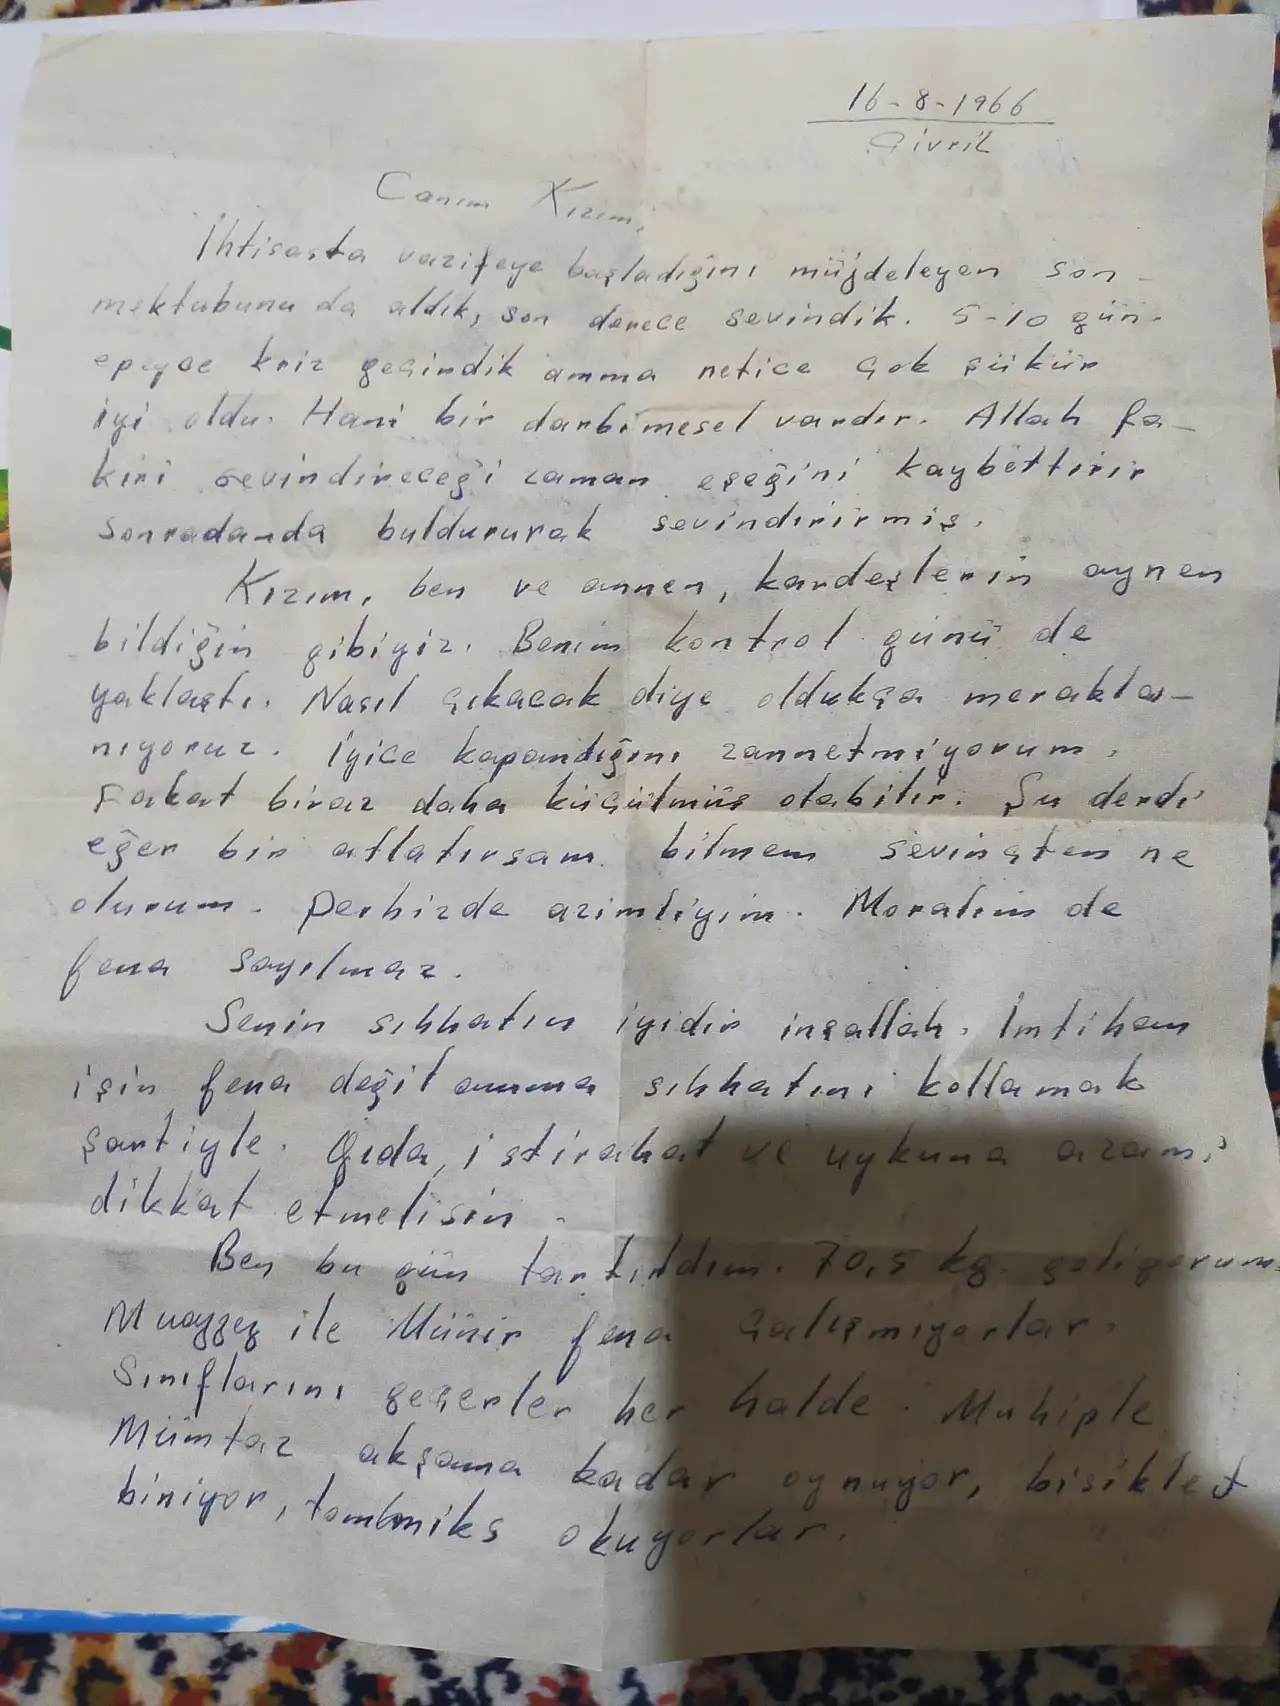 16-8-1966
Çivril
Canım Kızım,
İhtisasta vazifeye başladığını müjdeleyen son
mektubunu da aldık, son derece sevindik. 5-10 gün
epeyce kriz geçirdik amma netice çok şükür
iyi oldu. Hani bir darbimesel vardır. Allah fa-
kiri sevindireceği zaman eşeğini kaybettirir
sonradanda buldururak sevindirirmiş.
Kızım, ben ve annen, kardeşlerin aynen
bildiğin gibiyiz. Benim kontrol günü de
yaklaştı. Nasıl çıkacak diye oldukça merakla-
nıyoruz. İyice kapandığını zannetmiyorum.
Fakat biraz daha küçülmüş olabilir. Şu derdi
eğer bir atlatırsam bilmem sevinçten ne
olurum. Perhizde azimliyim. Moralim de
fena sayılmaz.
Senin sıhhatın iyidir inşallah. İmtihan
için fena değil amma sıhhatını kollamak
şartiyle. Gıda, istirahat ve uykuna azami
dikkat etmelisin.
Ben bu gün tartıldım. 70,5 kg. geliyorum.
Muazzez ile Münir fena çalışmıyorlar.
Sınıflarını geçerler her halde. Muhiple
Mümtaz akşama kadar oynuyor, bisiklet
biniyor, tommiks okuyorlar.